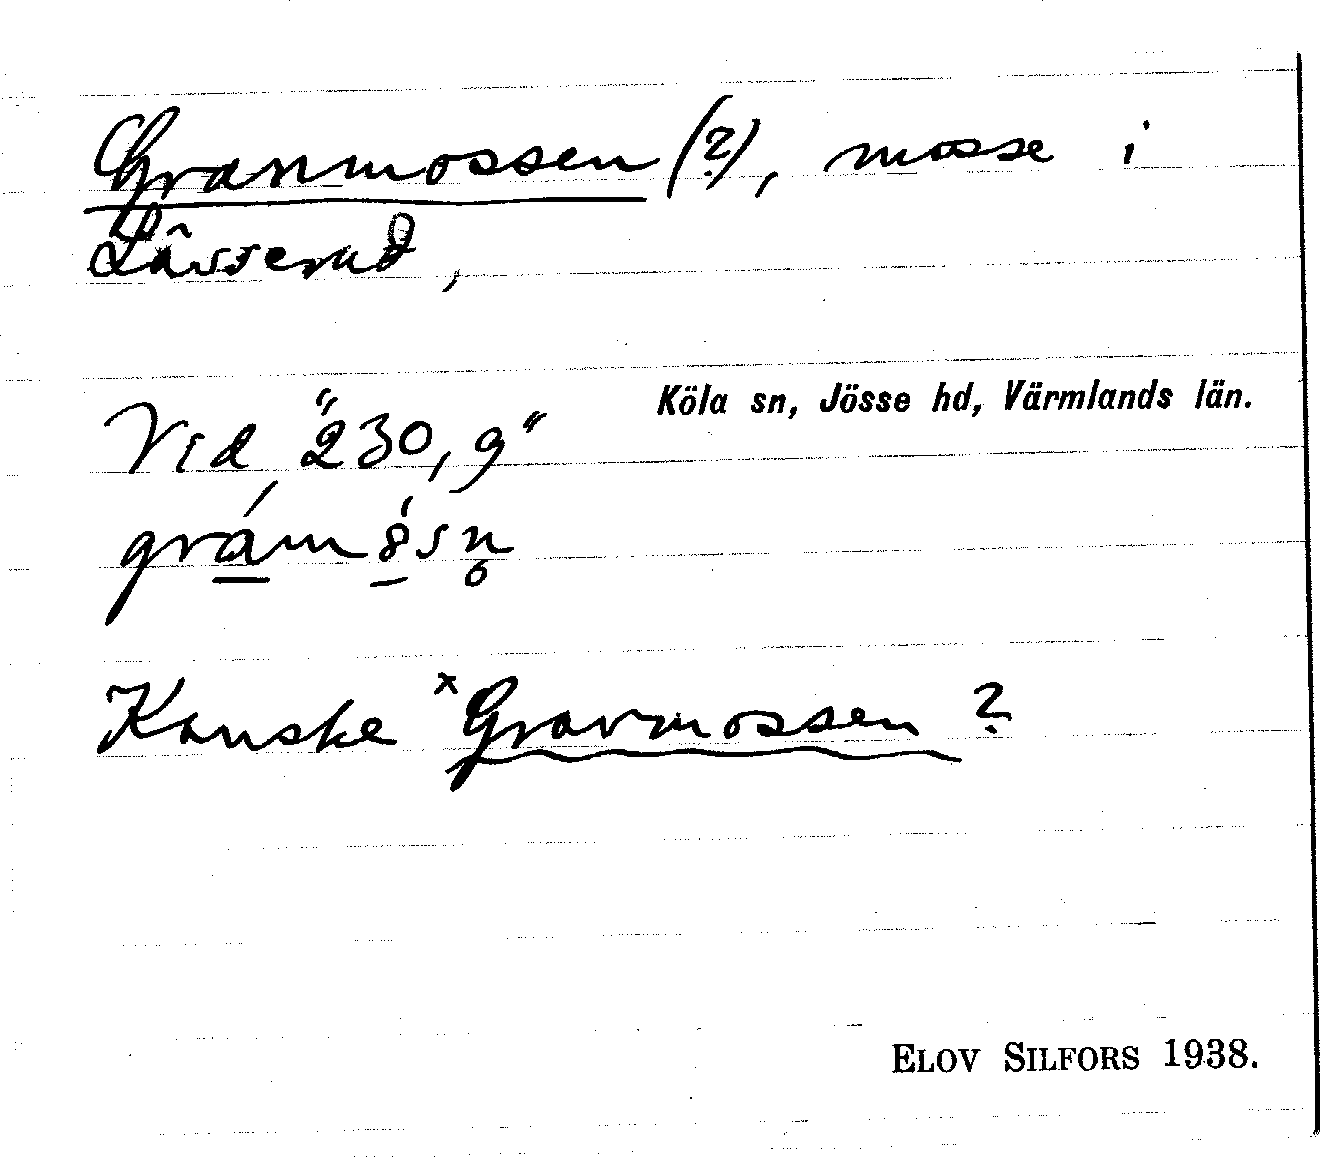 Granmossen (?), mosse i
Låsserud,
Köla sn, Jösse hd, Värmlands län.
Vid "230,9"
Kanske ˣGravmossen ?
ELOV SILFORS 1938.